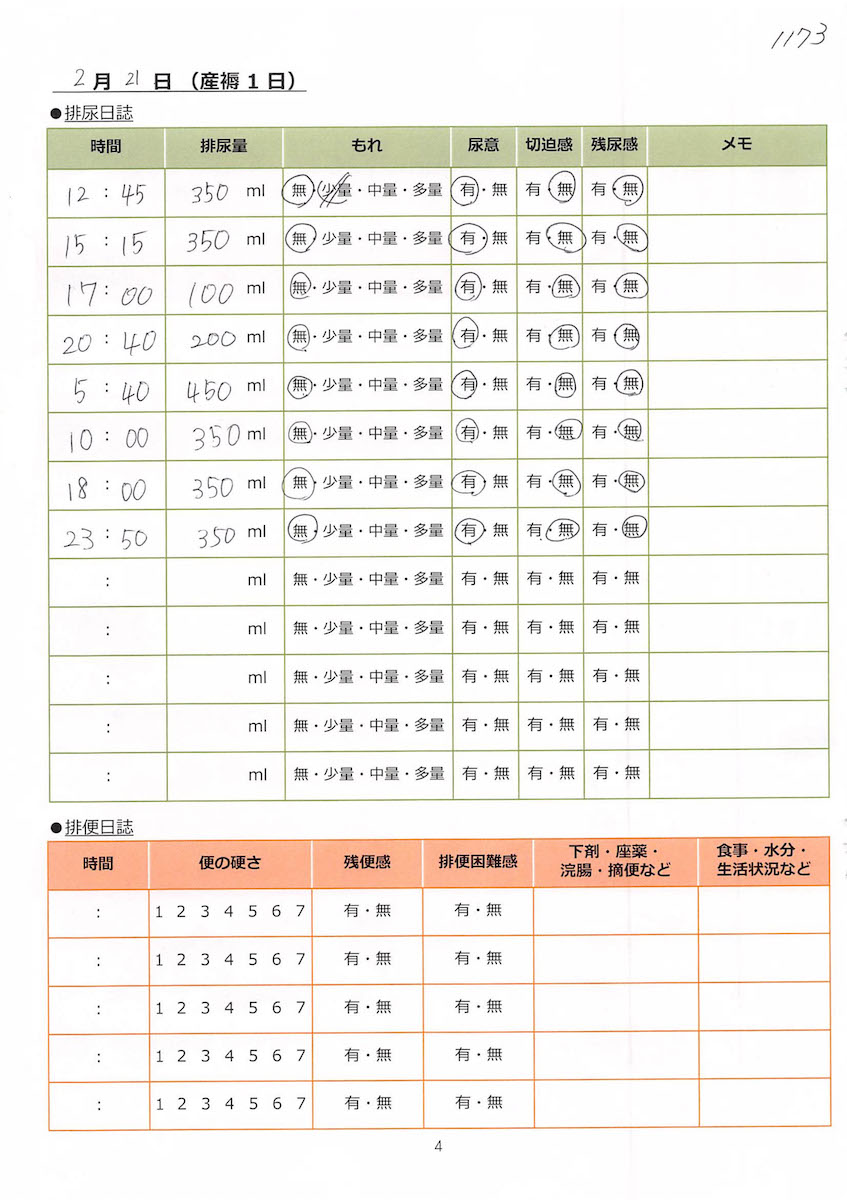 1173
2月21日（産褥1日）
●排尿日誌
時間 排尿量 もれ 尿意 切迫感 残尿感 メモ
12:45 350 ml 無・少量・中量・多量 有・無 有・無 有・無
15:15 350 ml 無・少量・中量・多量 有・無 有・無 有・無
17:00 100 ml 無・少量・中量・多量 有・無 有・無 有・無
20:40 200 ml 無・少量・中量・多量 有・無 有・無 有・無
5:40 450 ml 無・少量・中量・多量 有・無 有・無 有・無
10:00 350 ml 無・少量・中量・多量 有・無 有・無 有・無
18:00 350 ml 無・少量・中量・多量 有・無 有・無 有・無
23:50 350 ml 無・少量・中量・多量 有・無 有・無 有・無
: ml 無・少量・中量・多量 有・無 有・無 有・無
: ml 無・少量・中量・多量 有・無 有・無 有・無
: ml 無・少量・中量・多量 有・無 有・無 有・無
: ml 無・少量・中量・多量 有・無 有・無 有・無
: ml 無・少量・中量・多量 有・無 有・無 有・無
●排便日誌
時間 便の硬さ 残便感 排便困難感 下剤・座薬・浣腸・摘便など 食事・水分・生活状況など
: 1 2 3 4 5 6 7 有・無 有・無
: 1 2 3 4 5 6 7 有・無 有・無
: 1 2 3 4 5 6 7 有・無 有・無
: 1 2 3 4 5 6 7 有・無 有・無
: 1 2 3 4 5 6 7 有・無 有・無
4